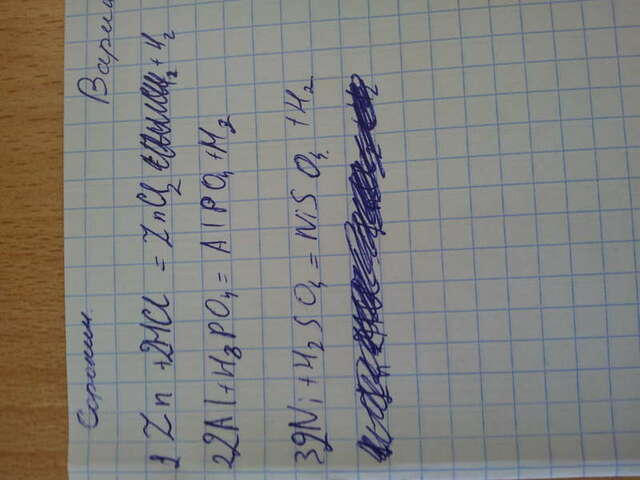 Сорокин Вариа
1 Zn + 2HCl = ZnCl2 + H2
2 2Al + H3PO4 = AlPO4 + H2
3 2Ni + H2SO4 = NiSO2 + H2